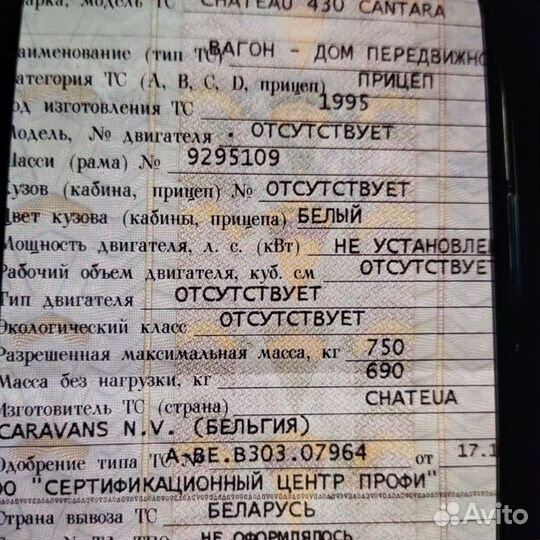 арка, модель ТС CHATEAU 430 CANTARA
аименование (тип ТС) ВАГОН - ДОМ ПЕРЕДВИЖНО
атегория ТС (A, B, C, D, прицеп) ПРИЦЕП
од изготовления ТС 1995
Модель, № двигателя ОТСУТСТВУЕТ
Шасси (рама) № 9295109
Кузов (кабина, прицеп) № ОТСУТСТВУЕТ
Цвет кузова (кабины, прицепа) БЕЛЫЙ
Мощность двигателя, л. с. (кВт) НЕ УСТАНОВЛЕ
Рабочий объем двигателя, куб. см ОТСУТСТВУЕТ
Тип двигателя ОТСУТСТВУЕТ
Экологический класс ОТСУТСТВУЕТ
Разрешенная максимальная масса, кг 750
Масса без нагрузки, кг 690
Изготовитель ТС (страна) CHATEUA
CARAVANS N.V. (БЕЛЬГИЯ)
Одобрение типа ТС № A-BE.B303.07964 от 17.1
ОО "СЕРТИФИКАЦИОННЫЙ ЦЕНТР ПРОФИ"
Страна вывоза ТС БЕЛАРУСЬ
НЕ ОФОРМЛЯЛОСЬ
Avito